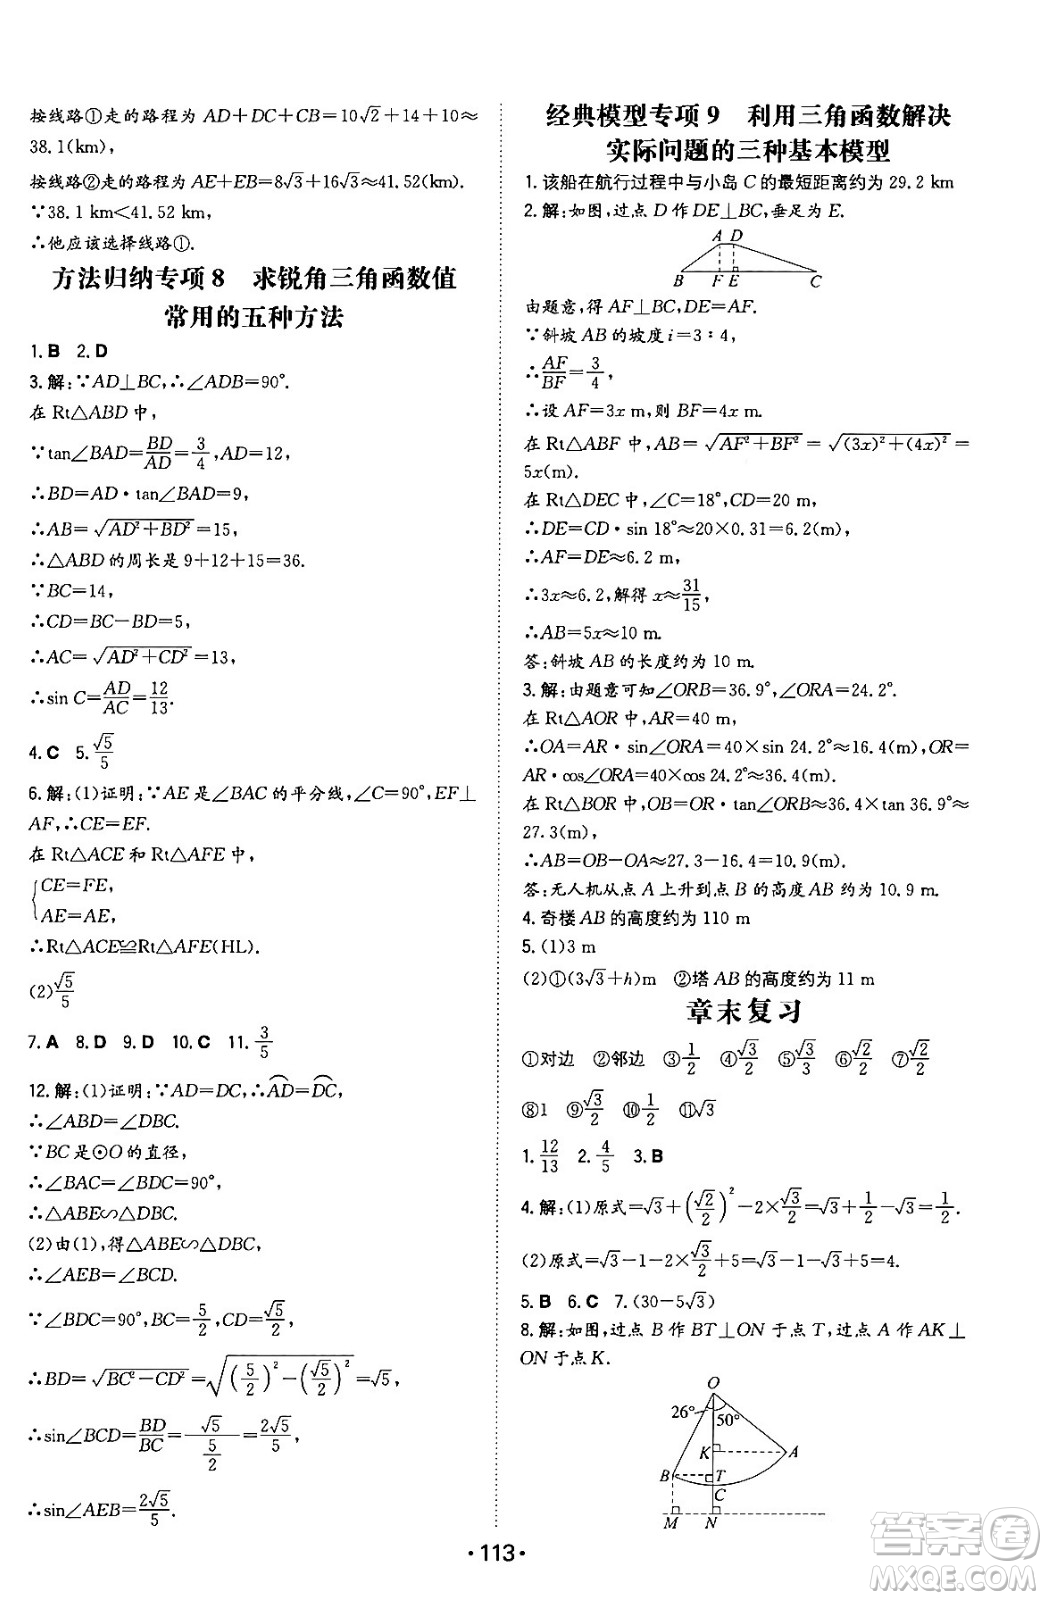 按线路①走的路程为 AD+DC+CB=10√2+20+4≈
38.1(km).
按线路②走的路程为 AE+EB=8√3+16√3≈41.52(km).
∵38.1 km<41.52 km,
∴他应该选择线路①.
方法归纳专项 8 求锐角三角函数值
常用的五种方法
1. B 2. D
3. 解:∵AD⊥BC,∴∠ADB=90°.
在 Rt△ABD 中,
∵tan∠BAD=BD/AD=3/4,AD=12,
∴BD=AD·tan∠BAD=9,
∴AB=√(AD²+BD²)=15,
∴△ABD 的周长是 9+12+15=36.
∵BC=14,
∴CD=BC−BD=5,
∴AC=√(AD²+CD²)=13,
∴sin C=AD/AC=12/13.
4. C 5. √5/5
6. 解:(1)证明:∵AE 是∠BAC 的平分线,∠C=90°,EF⊥
AF,∴CE=EF.
在 Rt△ACE 和 Rt△AFE 中,
{CE=FE,
AE=AE,
∴Rt△ACE≌Rt△AFE(HL).
(2)√5/5
7. A 8. D 9. D 10. C 11. 3/5
12. 解:(1)证明:∵AD=DC,∴⌒AD=⌒DC,
∴∠ABD=∠DBC.
∵BC 是⊙O 的直径,
∴∠BAC=∠BDC=90°,
∴△ABE∽△DBC.
(2)由(1),得△ABE∽△DBC,
∴∠AEB=∠BCD.
∵∠BDC=90°,BC=5/2,CD=√5/2,
∴BD=√(BC²−CD²)=√((5/2)²−(√5/2)²)=√5,
∴sin∠BCD=BD/BC=√5/(5/2)=2√5/5,
∴sin∠AEB=2√5/5.
经典模型专项 9 利用三角函数解决
实际问题的三种基本模型
1. 该船在航行过程中与小岛 C 的最短距离约为 29.2 km
2. 解:如图,过点 D 作 DE⊥BC,垂足为 E.
A D
B F E C
由题意,得 AF⊥BC,DE=AF.
∵斜坡 AB 的坡度 i=3∶4,
∴AF/BF=3/4,
∴设 AF=3x m,则 BF=4x m.
在 Rt△ABF 中,AB=√(AF²+BF²)=√((3x)²+(4x)²)=
5x(m).
在 Rt△DEC 中,∠C=18°,CD=20 m,
∴DE=CD·sin 18°≈20×0.31=6.2(m),
∴AF=DE≈6.2 m,
∴3x≈6.2,解得 x≈31/15,
∴AB=5x≈10 m.
答:斜坡 AB 的长度约为 10 m.
3. 解:由题意可知∠ORB=36.9°,∠ORA=24.2°.
在 Rt△AOR 中,AR=40 m,
∴OA=AR·sin∠ORA=40×sin 24.2°≈16.4(m),OR=
AR·cos∠ORA=40×cos 24.2°≈36.4(m).
在 Rt△BOR 中,OB=OR·tan∠ORB≈36.4×tan 36.9°≈
27.3(m),
∴AB=OB−OA≈27.3−16.4=10.9(m).
答:无人机从点 A 上升到点 B 的高度 AB 约为 10.9 m.
4. 奇楼 AB 的高度约为 110 m
5. (1)3 m
(2)①(3√3+h)m ②塔 AB 的高度约为 11 m
章末复习
①对边 ②邻边 ③1/2 ④√3/2 ⑤√3/3 ⑥√2/2 ⑦√2/2
⑧1 ⑨√3/2 ⑩1/2 ⑪√3
1. 12/13 2. 4/5 3. B
4. 解:(1)原式=√3+(√2/2)²−2×√3/2=√3+1/2−√3=1/2.
(2)原式=√3−1−2×√3/2+5=√3−1−√3+5=4.
5. B 6. C 7. (30−5√3)
8. 解:如图,过点 B 作 BT⊥ON 于点 T,过点 A 作 AK⊥
ON 于点 K.
O
26° 50°
K A
B T
C
M N
·113·
答案圈
MXQE.COM